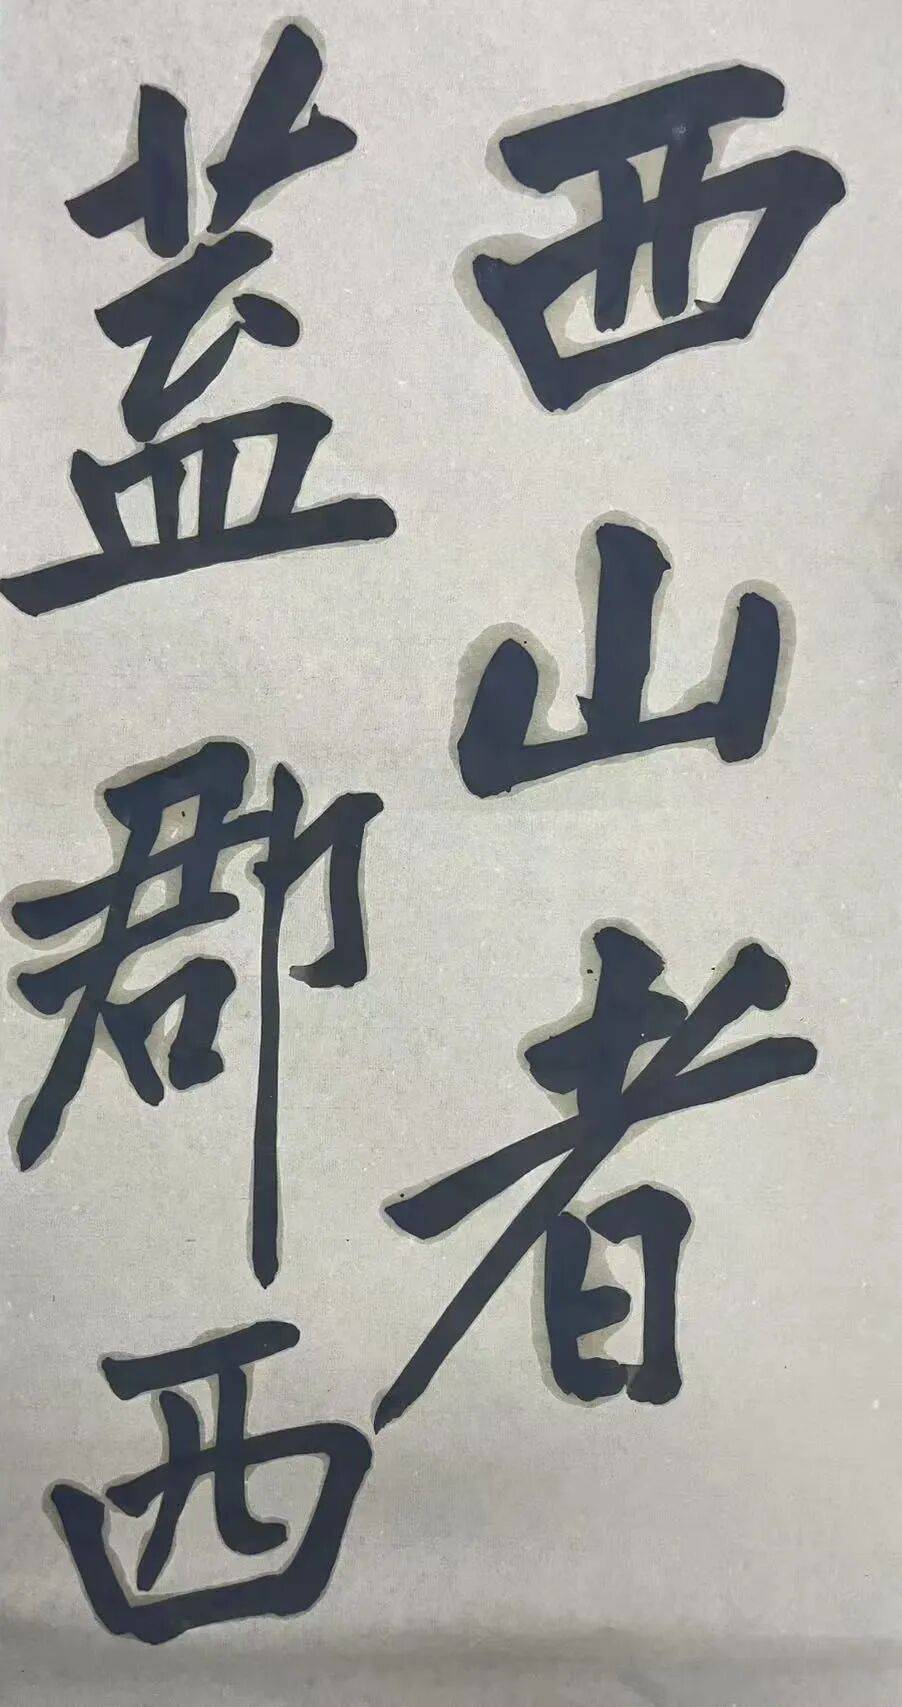 西山者
蓋郡西